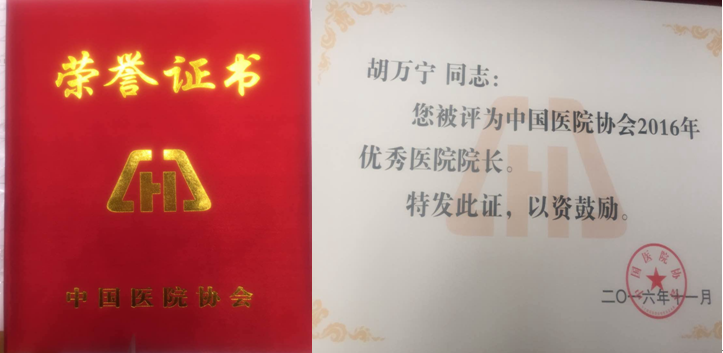 荣誉证书
中国医院协会
胡万宁 同志：
您被评为中国医院协会2016年
优秀医院院长。
特发此证，以资鼓励。
中国医院协会
二〇一六年十一月